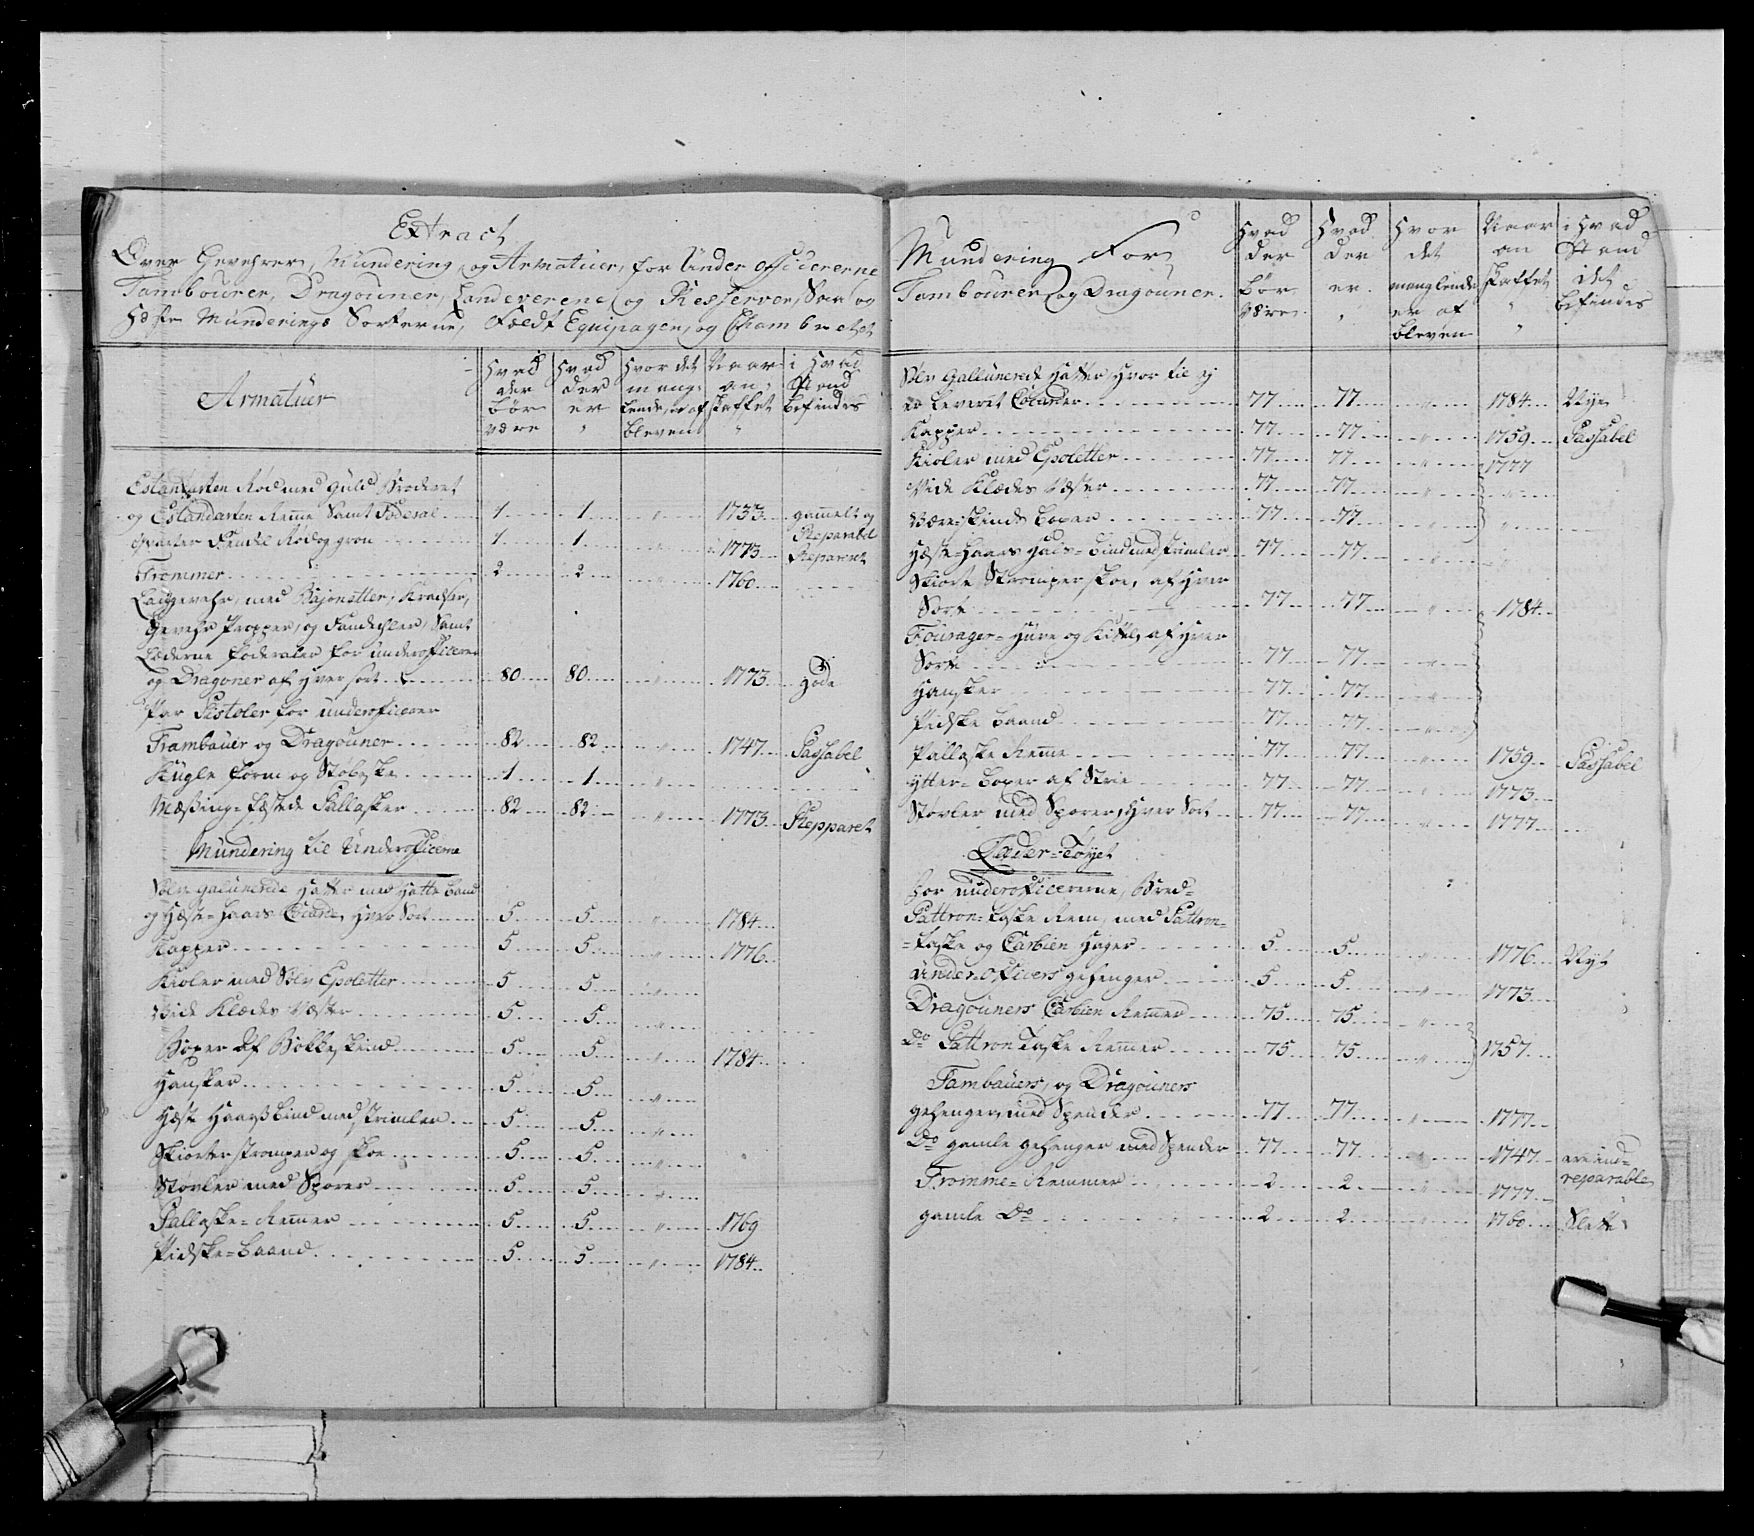 Extract
Over Gevehrer, Mundering og Armatuer, for Under Officererne
Tambourer, Dragouner, Landeverne og Reserver, Saa og
Heste Munderings Sorterne, Feldt Equipagen, og Chambre etet
Armatuer
Hvad der bör være
Hvad der er
Hvor det mang- lende er af bleven
Naar an- skaffet
i Hvad Stand befindes
Estandarten Röd med Guld Broderet
og Estandarten Remme Samt Foderal 1 1 " 1733 gammelt og Reparabel
Qvarter Fendel Röd og grön 1 1 " 1773 Reparert
Trommer 2 2 " 1760
Landgevehr, med Bajonetter, Kradser,
Gevehr Propper, og Samt
Læderne foderaler for underofficerer
og Dragoner af hver sort 80 80 " 1773 gode
Par Pistoler for underofficerer
Trambauer og Dragouner 82 82 " 1747 Passabel
Kugle form og Stöbeske 1 1 "
Messing-fæstede Pallasker 82 82 " 1773 Repparert
Mundering til Underofficerne
Sölv galunerede Hatter med Hatte baand
og Heste-Haars Cocarde, hver Sort 5 5 " 1784
Kapper 5 5 " 1776
Kioler med Sölv Epoletter 5 5 "
Vide Klædes Vester 5 5 "
Boxer af Bokkeskind 5 5 " 1784
Hansker 5 5 "
Hæste Haars bind med strimler 5 5 "
Skiorter strömper og skoe 5 5 "
Stövler med Sporer 5 5 "
Pallaske-Remmer 5 5 " 1769
Pidske-baand 5 5 " 1784
Mundering For
Tambourer og Dragouner.
Hvad der bör være
Hvad der er
Hvor det manglende er af bleven
Naar an skaffet
i Hvad Stand det befindes
Sölv Gallunerede Hatter, hvor til ey
er leveret Cocarder 77 77 " 1784 Nye
Kapper 77 77 " 1759 Passabel
Kioler med Epoletter 77 77 " 1777
Vide Klædes Vester 77 77 " "
boxer 77 77 " "
Hæste-Haars Hals-bind med strimler 77 77 " "
Skiorte Strömper skoe, af hver
Sort 77 77 " 1784
Fourager-Huve og Kittel, af hver
Sort 77 77 "
Hansker 77 77 "
Pidske baand 77 77 "
Pallaske Remme 77 77 1759 Passabel
Ytter-boxer af Strie 77 77 " 1773
Stövler med Sporer, hver Sort 77 77 " 1777
Læder-Töyet
for underofficererne, Bred-
Pattron-taske Rem, med Pattron-
-taske og Carbien Hager 5 5 " 1776 Nyt
Under officers gehenger 5 5 " 1773
Dragouners Carbien Remmer 75 75 "
Do Pattron Taske Remmer 75 75 " 1757
Tambauers, og Dragouners
gehenger med Spender 77 77 " 1777
Do gamle gehenger med Spender 77 77 " 1747 reparable
Tromme-Remmer 2 2 " 1777
gamle Do 2 2 " 1760 Slette